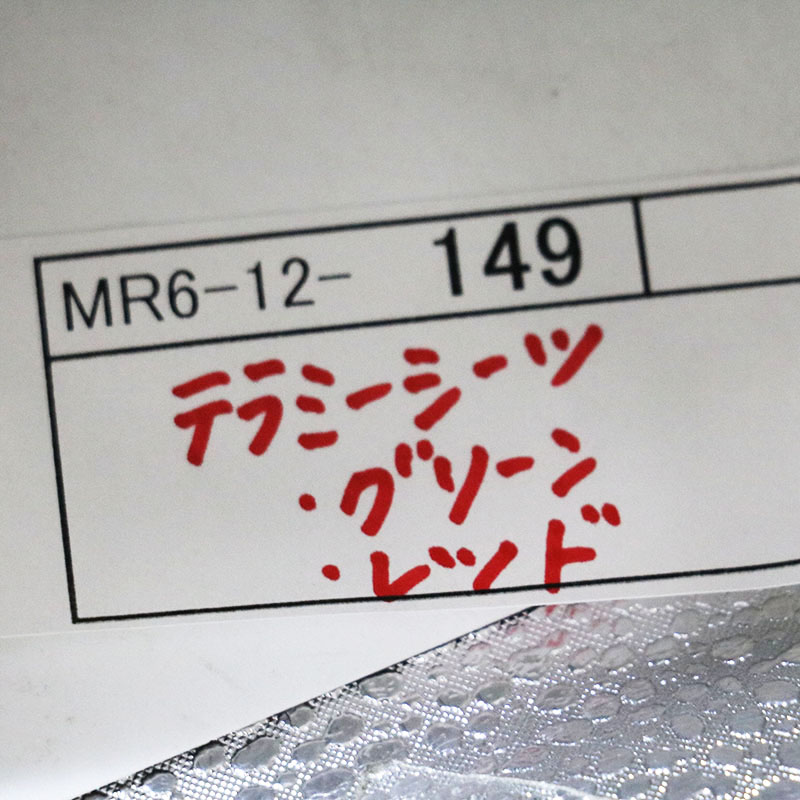 MR6-12- 149
テラミーシーツ
・グリーン
・レッド